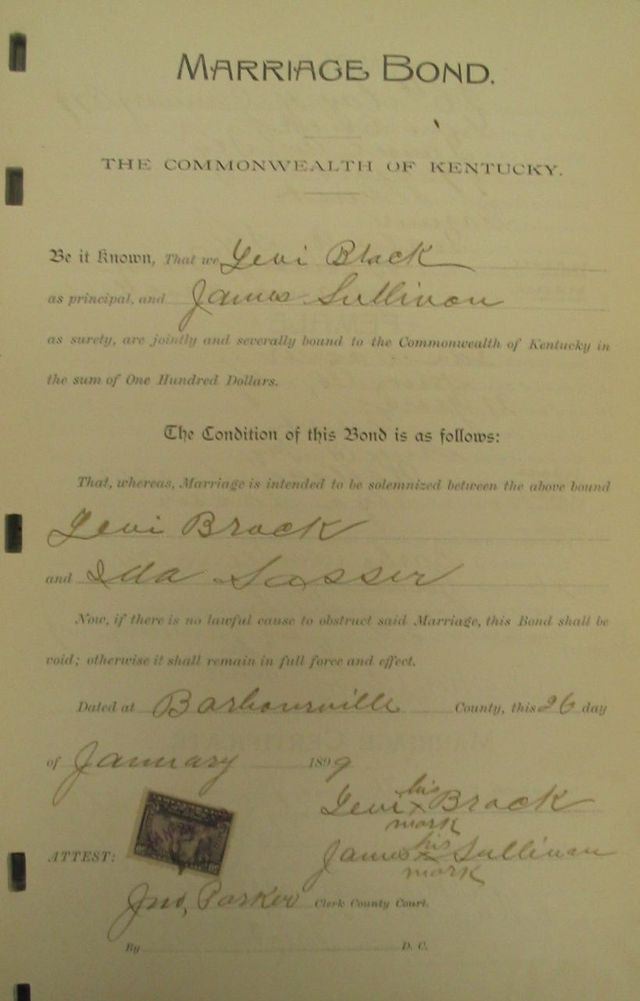 MARRIAGE BOND.
THE COMMONWEALTH OF KENTUCKY.
Be it Known, That we Levi Black
as principal, and James Sullivan
as surety, are jointly and severally bound to the Commonwealth of Kentucky in
the sum of One Hundred Dollars.
The Condition of this Bond is as follows:
That, whereas, Marriage is intended to be solemnized between the above bound
Levi Brock
and Ida Sasser
Now, if there is no lawful cause to obstruct said Marriage, this Bond shall be
void; otherwise it shall remain in full force and effect.
Dated at Barbourville County, this 26 day
of January 1899
his
Levi x Brock
mark
his
ATTEST: James x Sullivan
mark
Jno, Parker Clerk County Court.
By D. C.